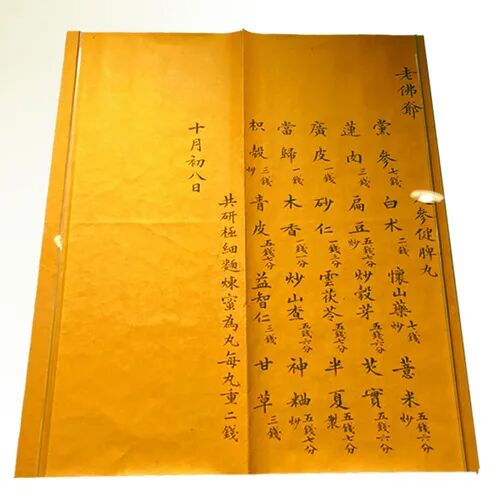 老佛爺 參健脾丸
黨參七錢 白术二錢 懷山藥炒七錢 薏米炒五錢六分
蓮肉三錢 扁豆炒五錢七分 炒穀芽五錢六分 芡實五錢六分
廣皮一錢 砂仁一錢三分 雲茯苓五錢六分 半夏製五錢七分
當歸一錢 木香一錢一分 炒山查五錢六分 神粬炒五錢七分
枳殼炒三錢 青皮五錢七分 益智仁三錢 甘草三錢
共研極細麵煉蜜為丸每丸重二錢
十月初八日